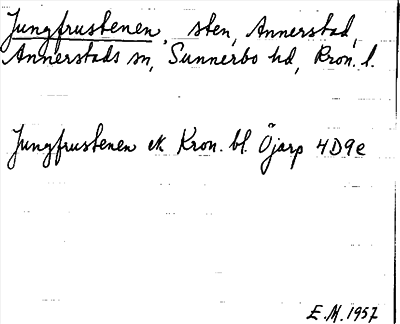 Jungfrustenen, sten, Annerstad,
Annerstads sn, Sunnerbo hd, Kron. l.
Jungfrustenen ek Kron. bl. Öjarp 4D9e
E.M. 1957